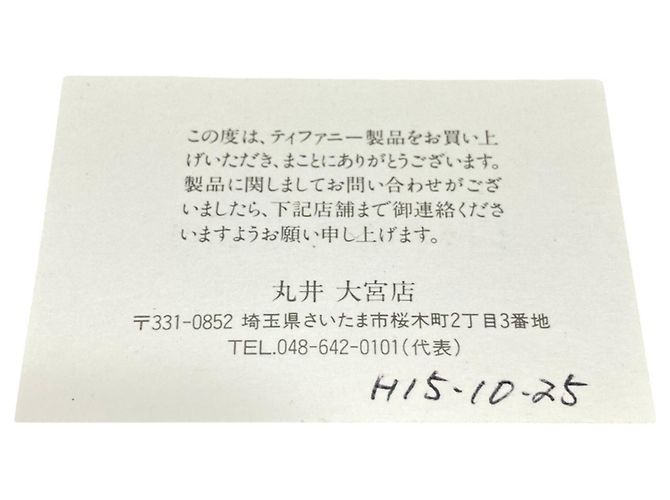 この度は、ティファニー製品をお買い上
げいただき、まことにありがとうございます。
製品に関しましてお問い合わせがござ
いましたら、下記店舗まで御連絡くださ
いますようお願い申し上げます。
丸井 大宮店
〒331-0852 埼玉県さいたま市桜木町2丁目3番地
TEL.048-642-0101(代表)
H15-10-25